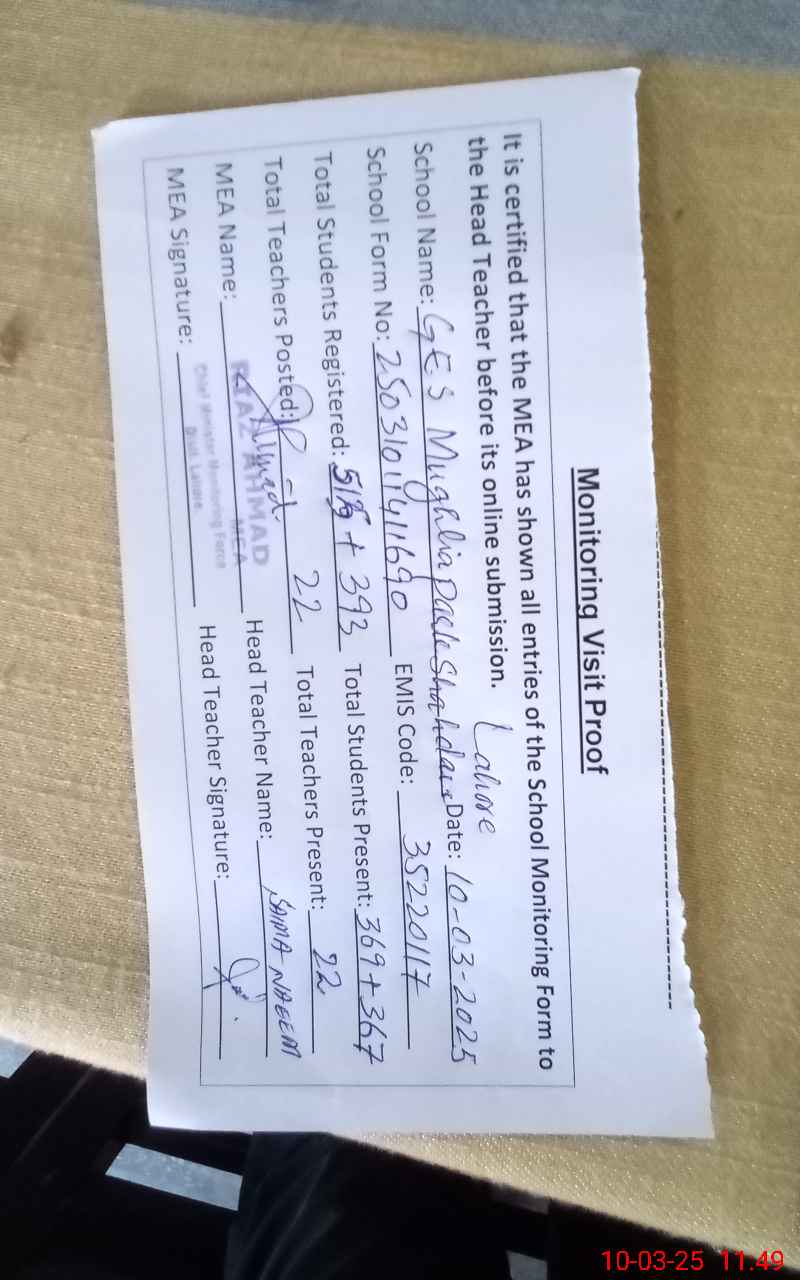 Monitoring Visit Proof
It is certified that the MEA has shown all entries of the School Monitoring Form to
the Head Teacher before its online submission.
Lahore
School Name: GES Mughlia Park Shahdara Date: 10-03-2025
School Form No: 25031011411690 EMIS Code: 35220117
Total Students Registered: + 393 Total Students Present: 369 + 367
Total Teachers Posted: 22 Total Teachers Present: 22
MEA Name: RIAZ AHMAD Head Teacher Name: SAIMA NAEEM
MEA
MEA Signature: Head Teacher Signature:
Chief Minister Monitoring Force
Distt. Lahore.
10-03-25 11.49